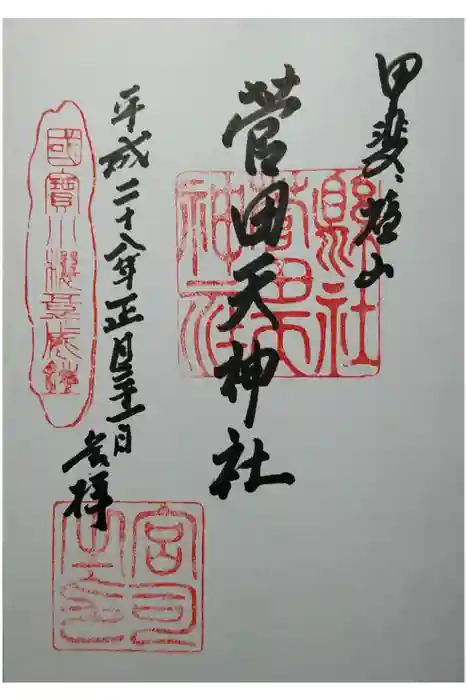 甲斐塩山
縣社菅田天神社
菅田天神社
平成二十八年正月三十一日
拝
國寶小櫻韋威鎧
宮司之印